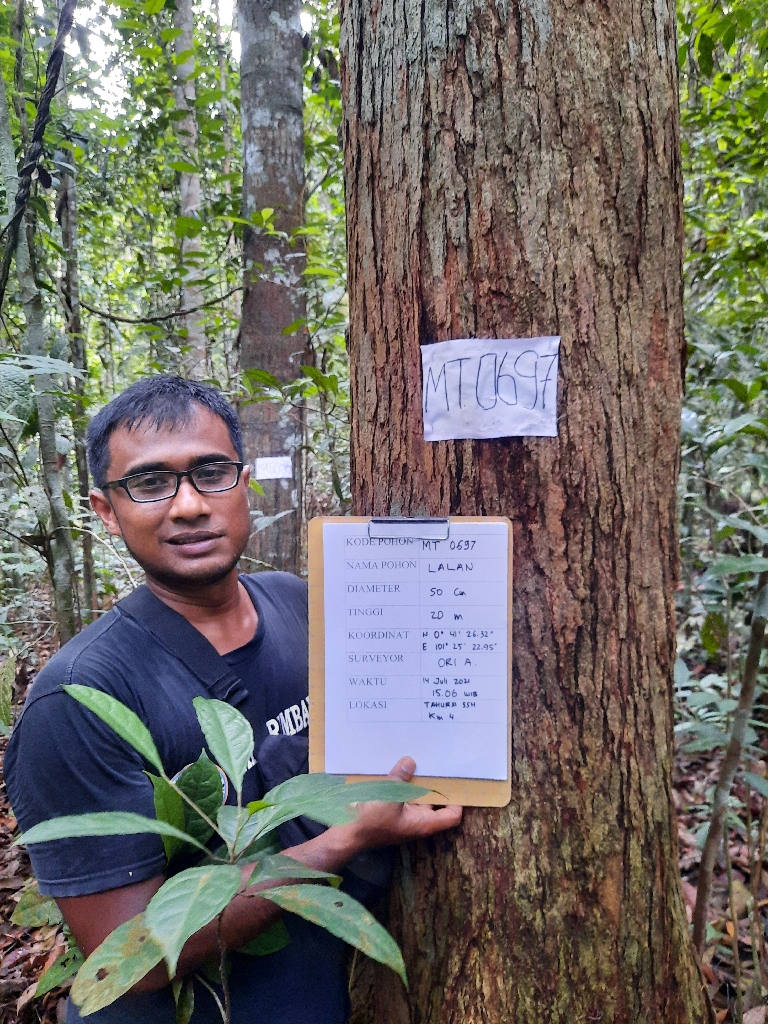 MT.0697
KODE POHON MT 0697
NAMA POHON LALAN
DIAMETER 50 Cm
TINGGI 20 m
KOORDINAT N 0° 41' 26.32"
E 101° 25' 22.95"
SURVEYOR ORI A.
WAKTU 14 Juli 2021
15.06 WIB
LOKASI TAHURA SSH
Km 4